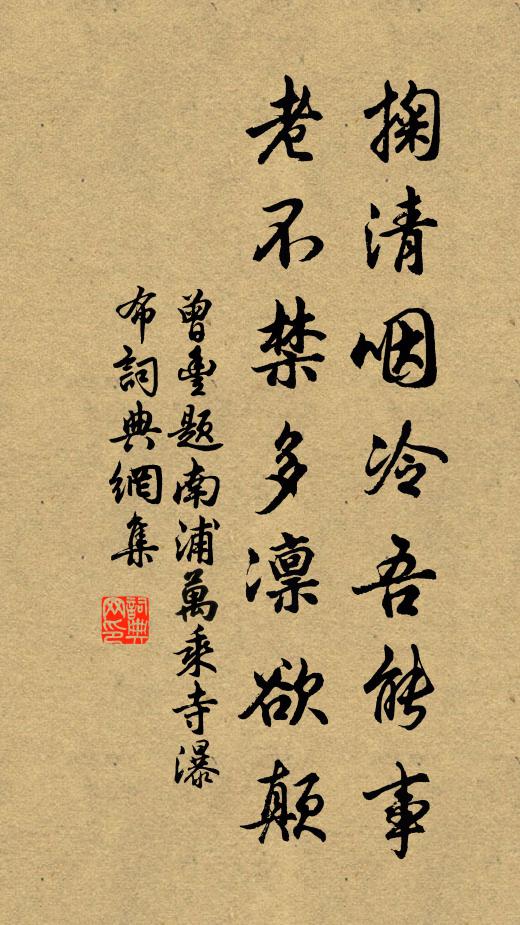 掬清咽冷吾能事
老不禁多凛欲颠
曾豐题南浦萬乘寺瀑
布詞典網集
詞典
网印